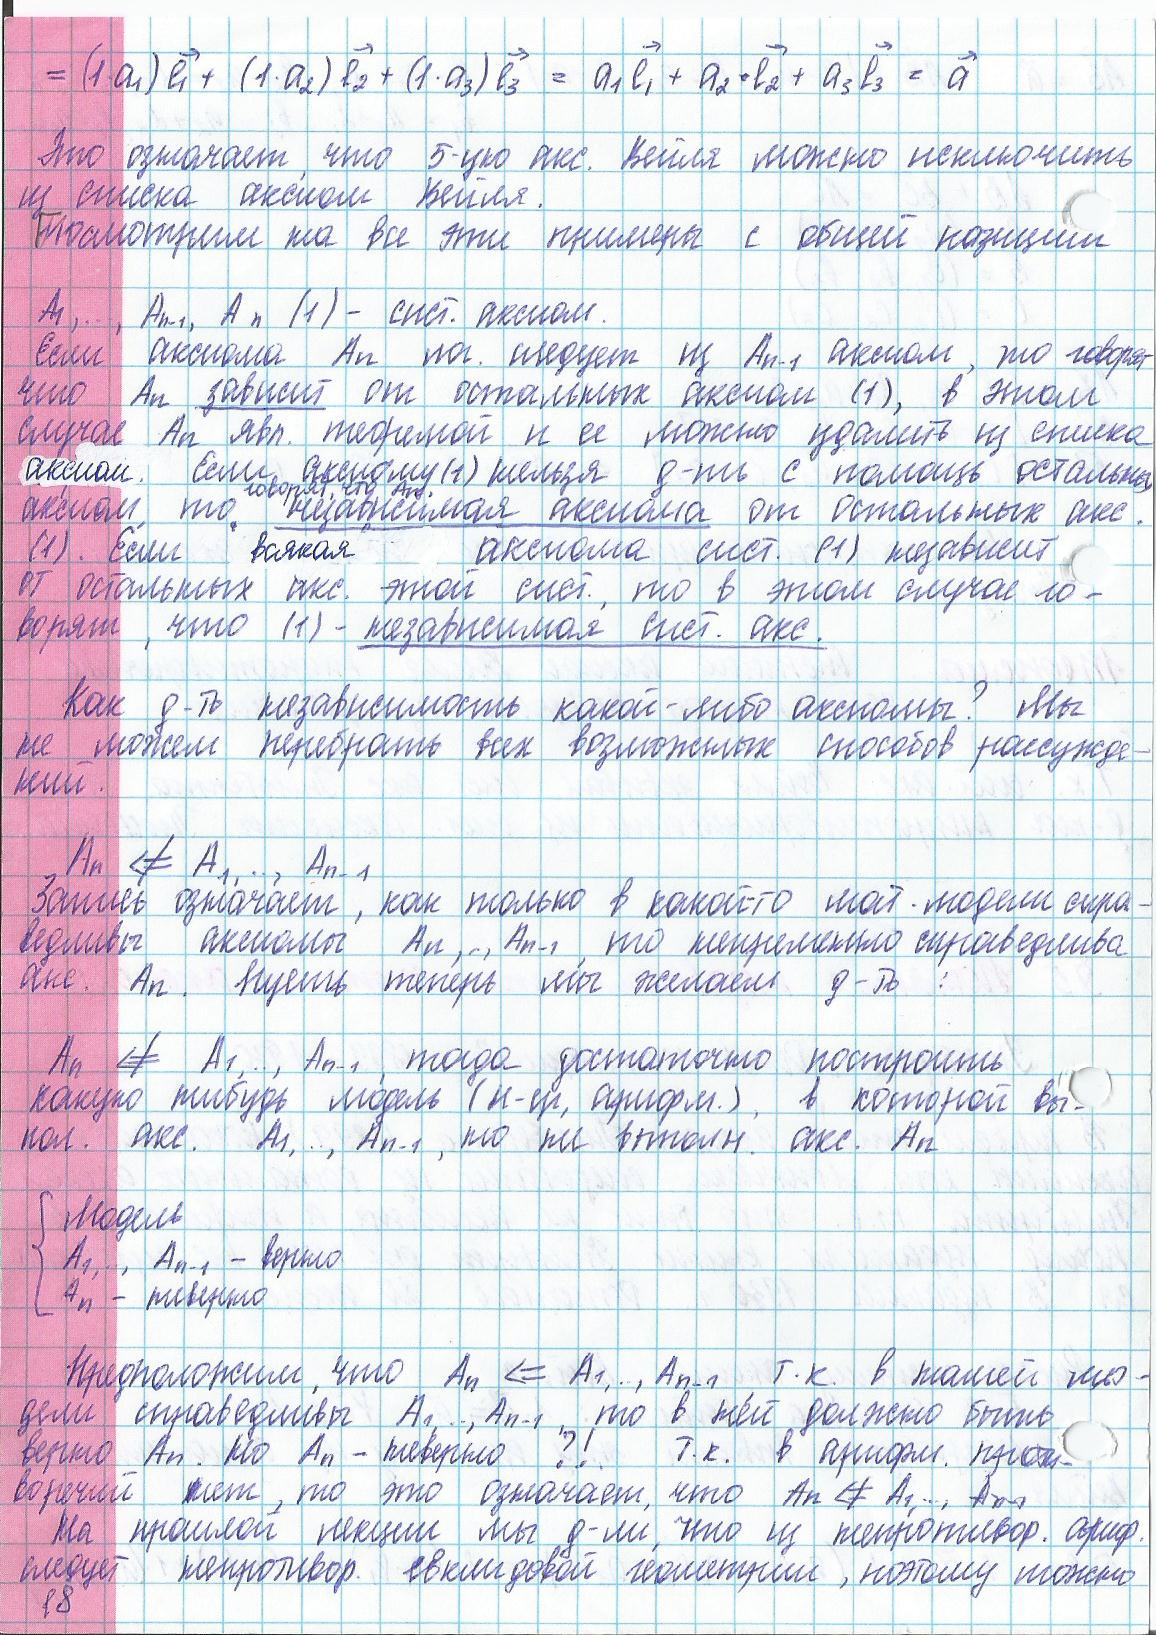 = (1·a₁)e₁⃗ + (1·a₂)e₂⃗ + (1·a₃)e₃⃗ = a₁e₁⃗ + a₂·e₂⃗ + a₃e₃⃗ = a⃗
Это означает что 5-ую акс. Вейля можно исключить
из списка аксиом Вейля.
Посмотрим на все эти примеры с общей позиции
A₁,.., Aₙ₋₁, Aₙ (1) – сист. аксиом.
Если аксиома Aₙ лог. следует из Aₙ₋₁ аксиом, то говорят
что Aₙ зависит от остальных аксиом (1), в этом
случае Aₙ явл. теоремой и ее можно удалить из списка
аксиом. Если аксиому (1) нельзя д-ть с помощь остальных
говорят, что Aₙ
аксиом то независимая аксиома от остальных акс.
(1). Если всякая аксиома сист. (1) независит
от остальных акс. этой сист., то в этом случае го-
ворят, что (1) – независимая сист. акс.
Как д-ть независимость какой-либо аксиомы? Мы
не можем перебрать всех возможных способов рассужде-
ний.
Aₙ ⇍ A₁,.., Aₙ₋₁
Запись означает, как только в какой-то мат. модели спра-
ведливы аксиомы Aₙ,.., Aₙ₋₁, то непременно справедлива
акс. Aₙ. Пусть теперь мы желаем д-ть :
Aₙ ⇍ A₁,.., Aₙ₋₁, тогда достаточно построить
какую нибудь модель (н-р, арифм.), в которой вы-
пол. акс. A₁,.., Aₙ₋₁, но не выполн. акс. Aₙ
{ Модель
A₁,.., Aₙ₋₁ – верно
Aₙ – неверно
Предположим, что Aₙ ⇐ A₁,.., Aₙ₋₁ т.к. в нашей мо-
дели справедливы A₁,.., Aₙ₋₁, то в ней должно быть
верно Aₙ. Но Aₙ – неверно ?! Т.к. в арифм. проти-
воречий нет, то это означает, что Aₙ ⇍ A₁,.., Aₙ₋₁
На прошлой лекции мы д-ли, что из непротивор. ариф.
следует непротивор. евклидовой геометрии, поэтому можно
18